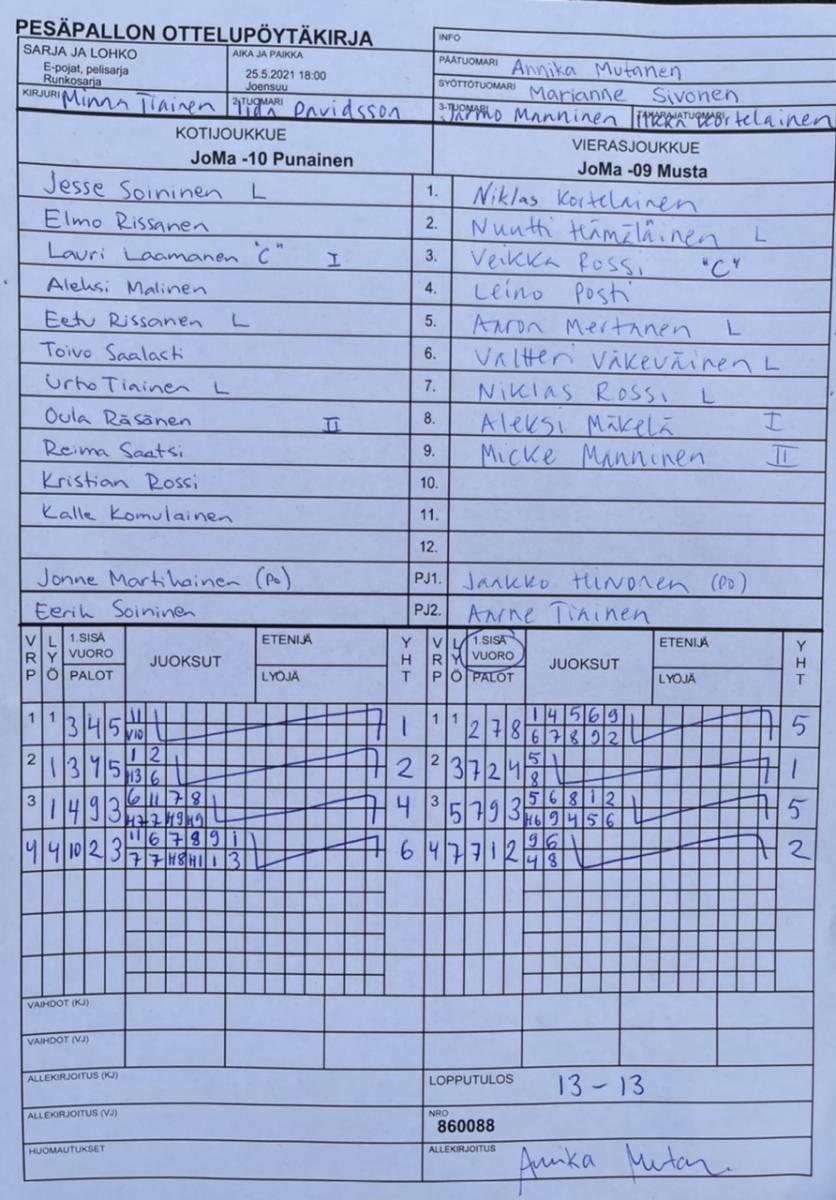 PESÄPALLON OTTELUPÖYTÄKIRJA
INFO
SARJA JA LOHKO
E-pojat, pelisarja
Runkosarja
AIKA JA PAIKKA
25.5.2021 18:00
Joensuu
PÄÄTUOMARI Annika Mutanen
SYÖTTÖTUOMARI Marianne Sivonen
KIRJURI Minna Tiainen 2-TUOMARI Iida Davidsson 3-TUOMARI Jarmo Manninen TAKARAJATUOMARI Ilkka Kortelainen
KOTIJOUKKUE VIERASJOUKKUE
JoMa -10 Punainen JoMa -09 Musta
Jesse Soininen L 1. Niklas Kortelainen
Elmo Rissanen 2. Nuutti Hämäläinen L
Lauri Laamanen "C" I 3. Veikka Rossi "C"
Aleksi Malinen 4. Leino Posti
Eetu Rissanen L 5. Aaron Mertanen L
Toivo Saalasti 6. Valtteri Väkeväinen L
Urho Tiainen L 7. Niklas Rossi L
Oula Räsänen II 8. Aleksi Mäkelä I
Reima Saatsi 9. Micke Manninen II
Kristian Rossi 10.
Kalle Komulainen 11.
12.
Jonne Martihainen (PO) PJ1. Jaakko Hirvonen (PO)
Eerik Soininen PJ2. Aarne Tiainen
VRP LYÖ 1.SISÄ VUORO PALOT JUOKSUT ETENIJÄ LYÖJÄ YHT VRP LYÖ 1.SISÄ VUORO PALOT JUOKSUT ETENIJÄ LYÖJÄ YHT
1 1 3 4 5 11 1 1 1 2 7 8 1 4 5 6 9 5
V10 6 7 8 9 2
2 1 3 4 5 1 2 2 2 3 7 2 4 5 1
H3 6 8
3 1 4 9 3 6 11 7 8 4 3 5 7 9 3 5 6 8 1 2 5
H7 7 H9 H9 H6 9 4 5 6
4 4 10 2 3 11 6 7 8 9 1 6 4 7 7 1 2 9 6 2
7 7 H8 H1 1 3 4 8
VAIHDOT (KJ)
VAIHDOT (VJ)
ALLEKIRJOITUS (KJ) LOPPUTULOS 13-13
ALLEKIRJOITUS (VJ) NRO
860088
HUOMAUTUKSET ALLEKIRJOITUS Annika Mutan